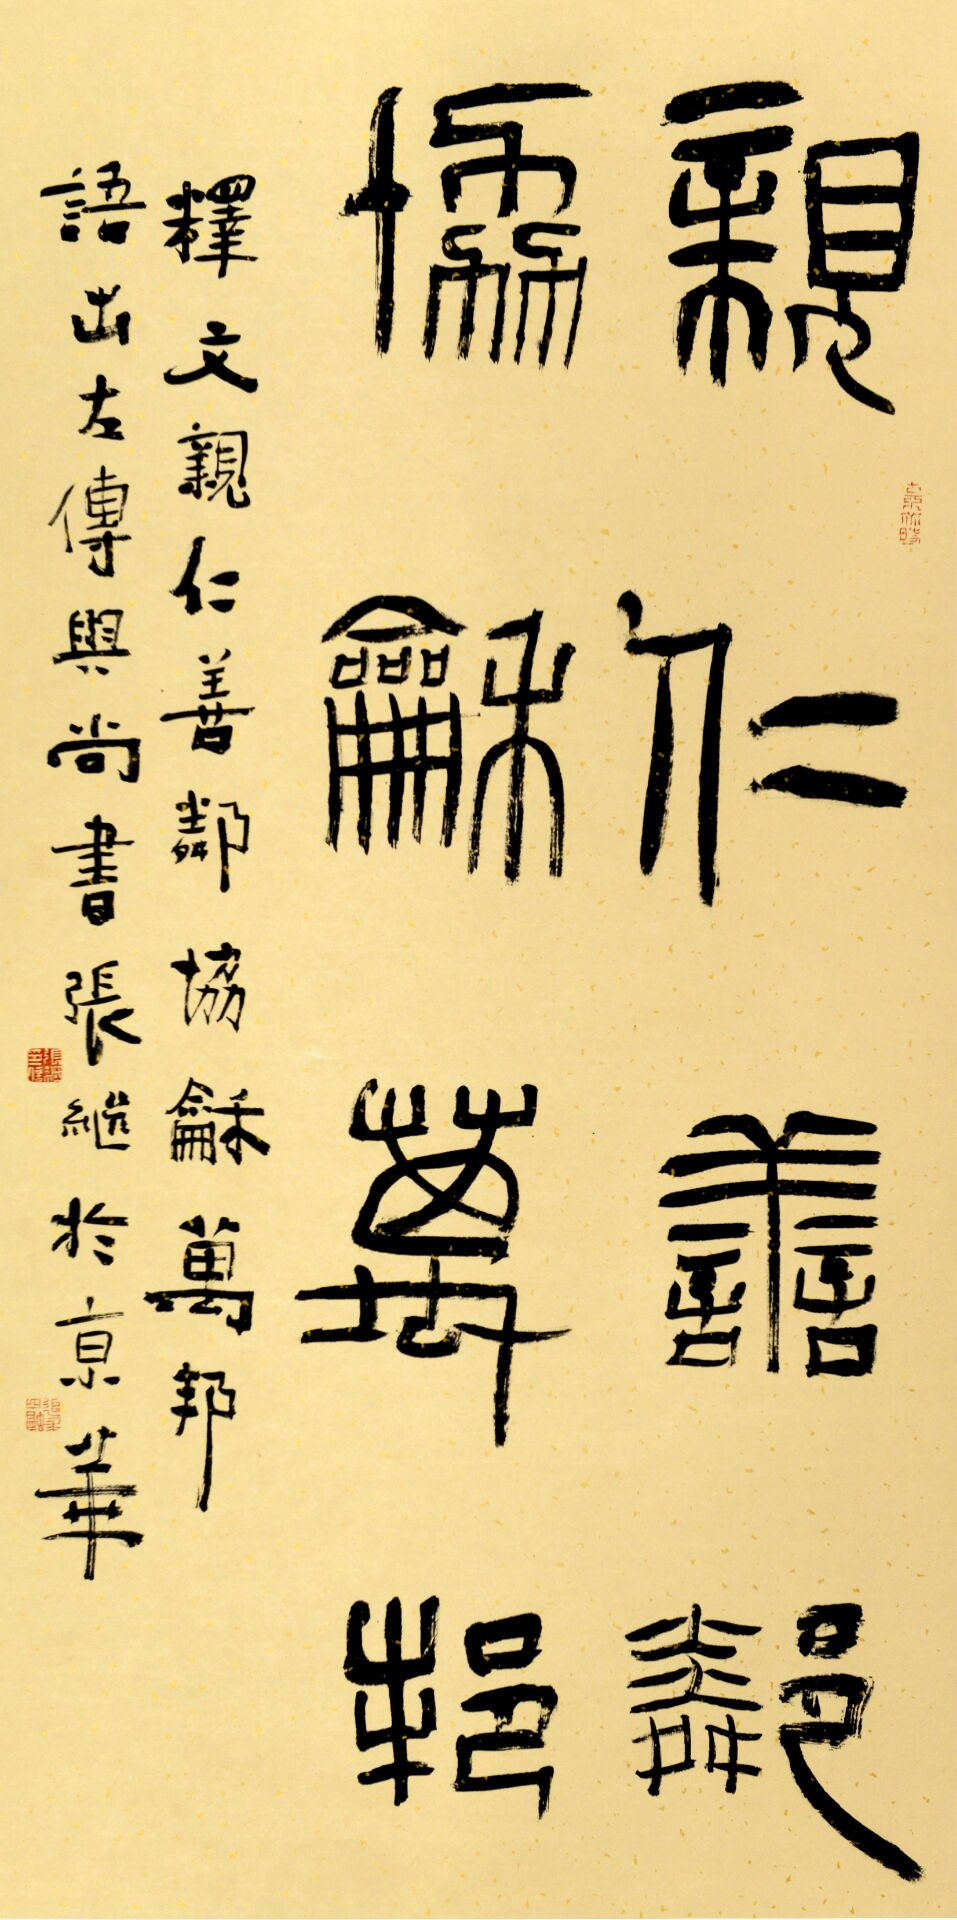 親仁善鄰
協龢萬邦
釋文親仁善鄰協龢萬邦
語出左傳與尚書張継於京華